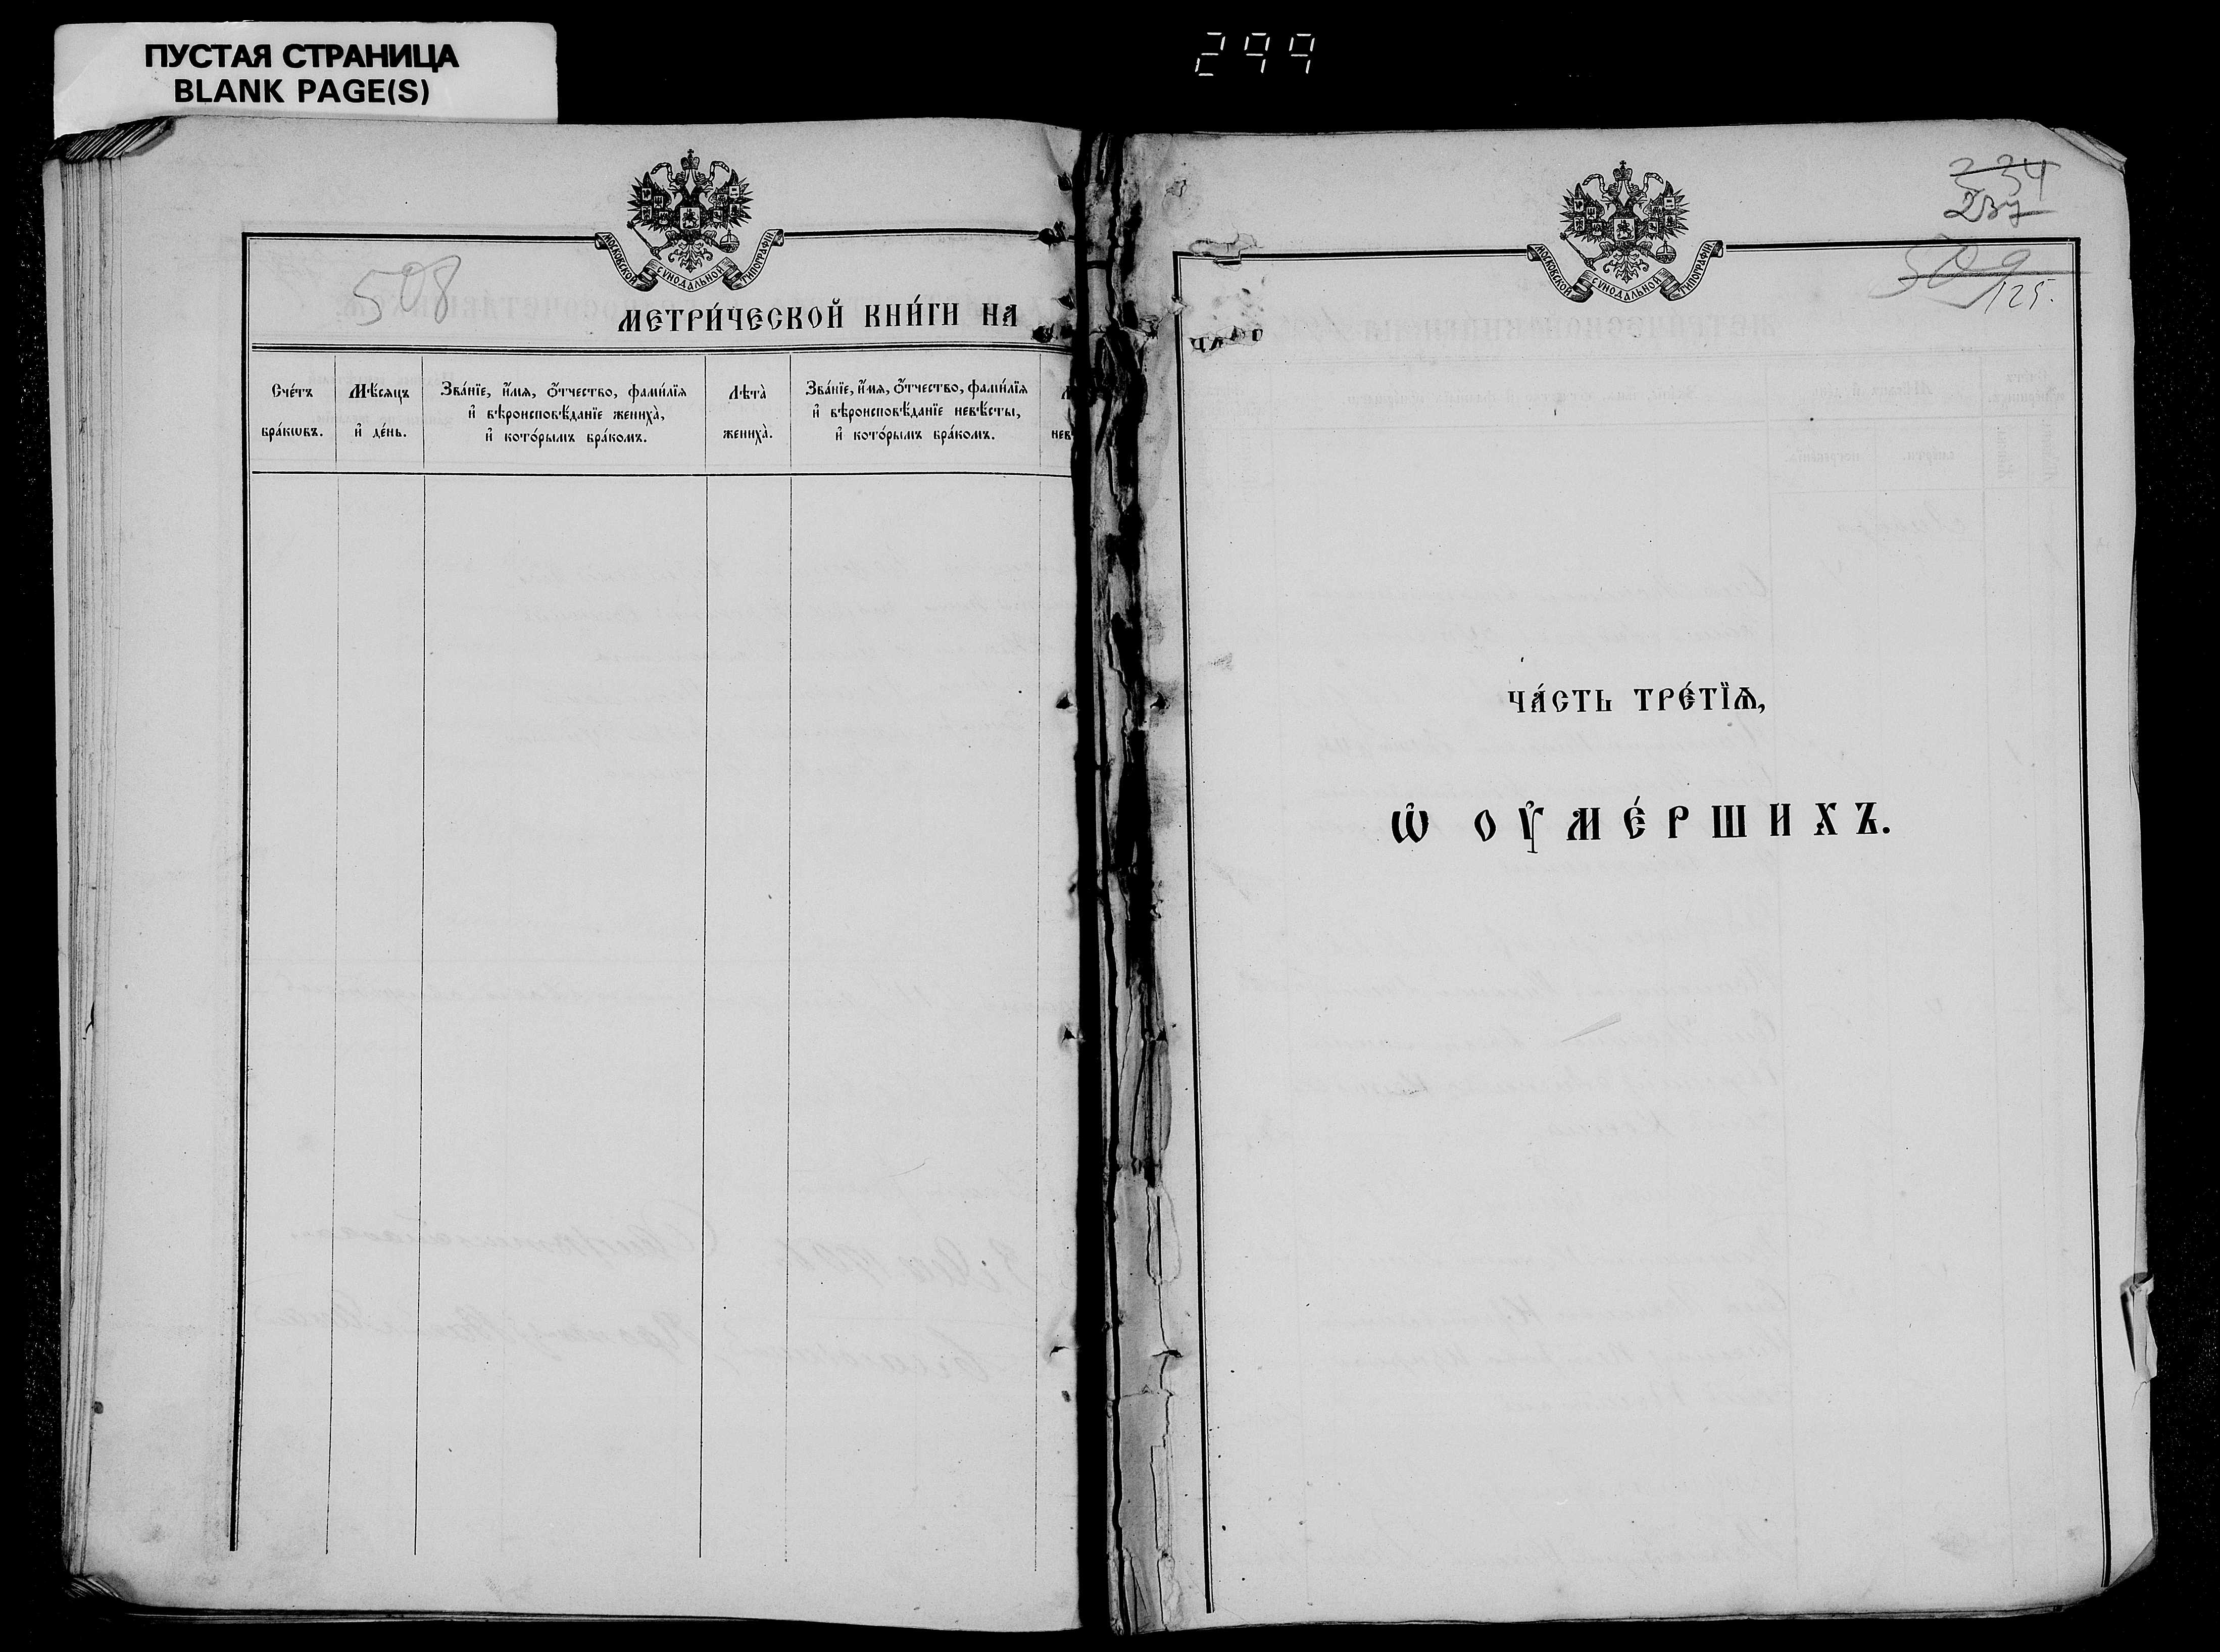 ПУСТАЯ СТРАНИЦА
BLANK PAGE(S)
299
МОСКОВСКОЙ СѴНОДАЛЬНОЙ ТИПОГРАФІИ
508
МЕТРИ́ЧЕСКОЙ КНИ́ГИ НА
Сче́тъ бра́кѡвъ.
Мѣ́сѧцъ и҆ де́нь.
Зва́нїе, и҆́мѧ, ѻ҆́тчество, фами́лїѧ
и҆ вѣроисповѣ́данїе жениха̀,
и҆ кото́рымъ бра́комъ.
Лѣта̀ жениха̀.
Зва́нїе, и҆́мѧ, ѻ҆́тчество, фами́лїѧ
и҆ вѣроисповѣ́данїе невѣ́сты,
и҆ кото́рымъ бра́комъ.
МОСКОВСКОЙ СѴНОДАЛЬНОЙ ТИПОГРАФІИ
234
237
509
125.
ЧА́СТЬ ТРЕ́ТЇѦ,
Ѡ҆ ОУ҆МЕ́РШИХЪ.